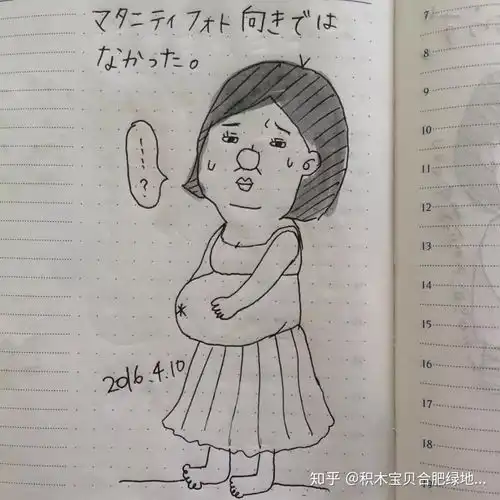 マタニティフォト向きでは
なかった。
?
2016.4.10
7
8
9
10
11
12
13
14
15
16
17
18
知乎 @积木宝贝合肥绿地...